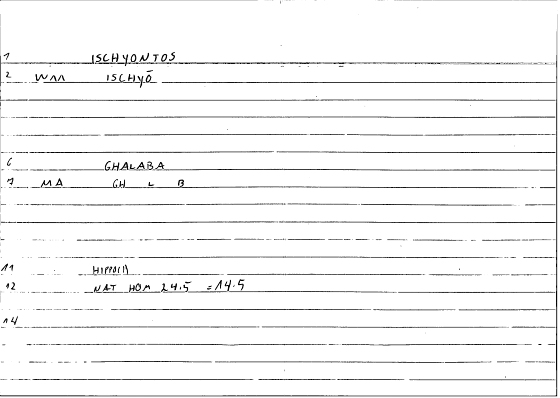 1 ISCHYONTOS
2 WAA ISCHYŌ
6 GHALABA
7 MA GH L B
11
12 NAT HOM 24.5 = 14.5
14